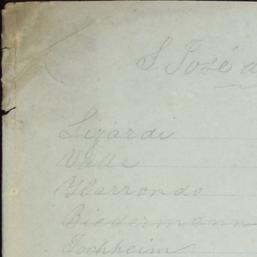 S José a
Lizardi
Valle
Ybarrondo
Biedermann
Jochheim